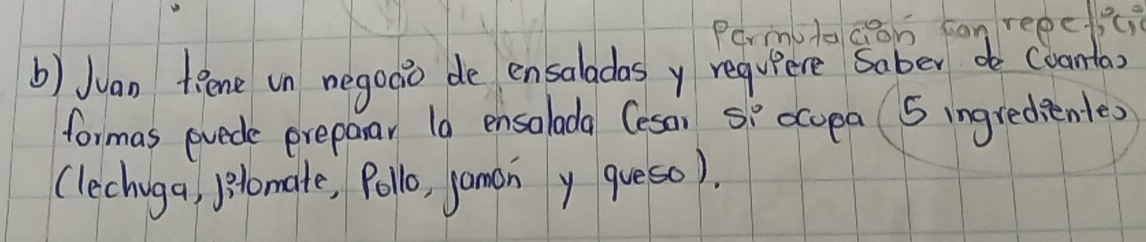 Permutación con repetici
b) Juan tiene un negocio de ensaladas y requiere saber de Cuantas
formas puede preparar la ensalada Cesar si ocupa 5 ingredientes
(lechuga, jitomate, Pollo, jamón y queso).